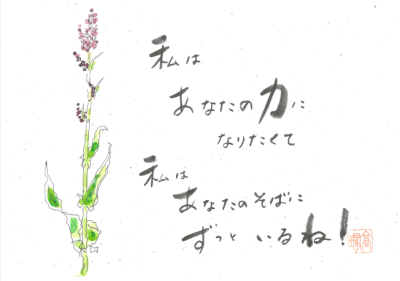 私は
あなたの力に
なりたくて
私は
あなたのそばに
ずっといるね!